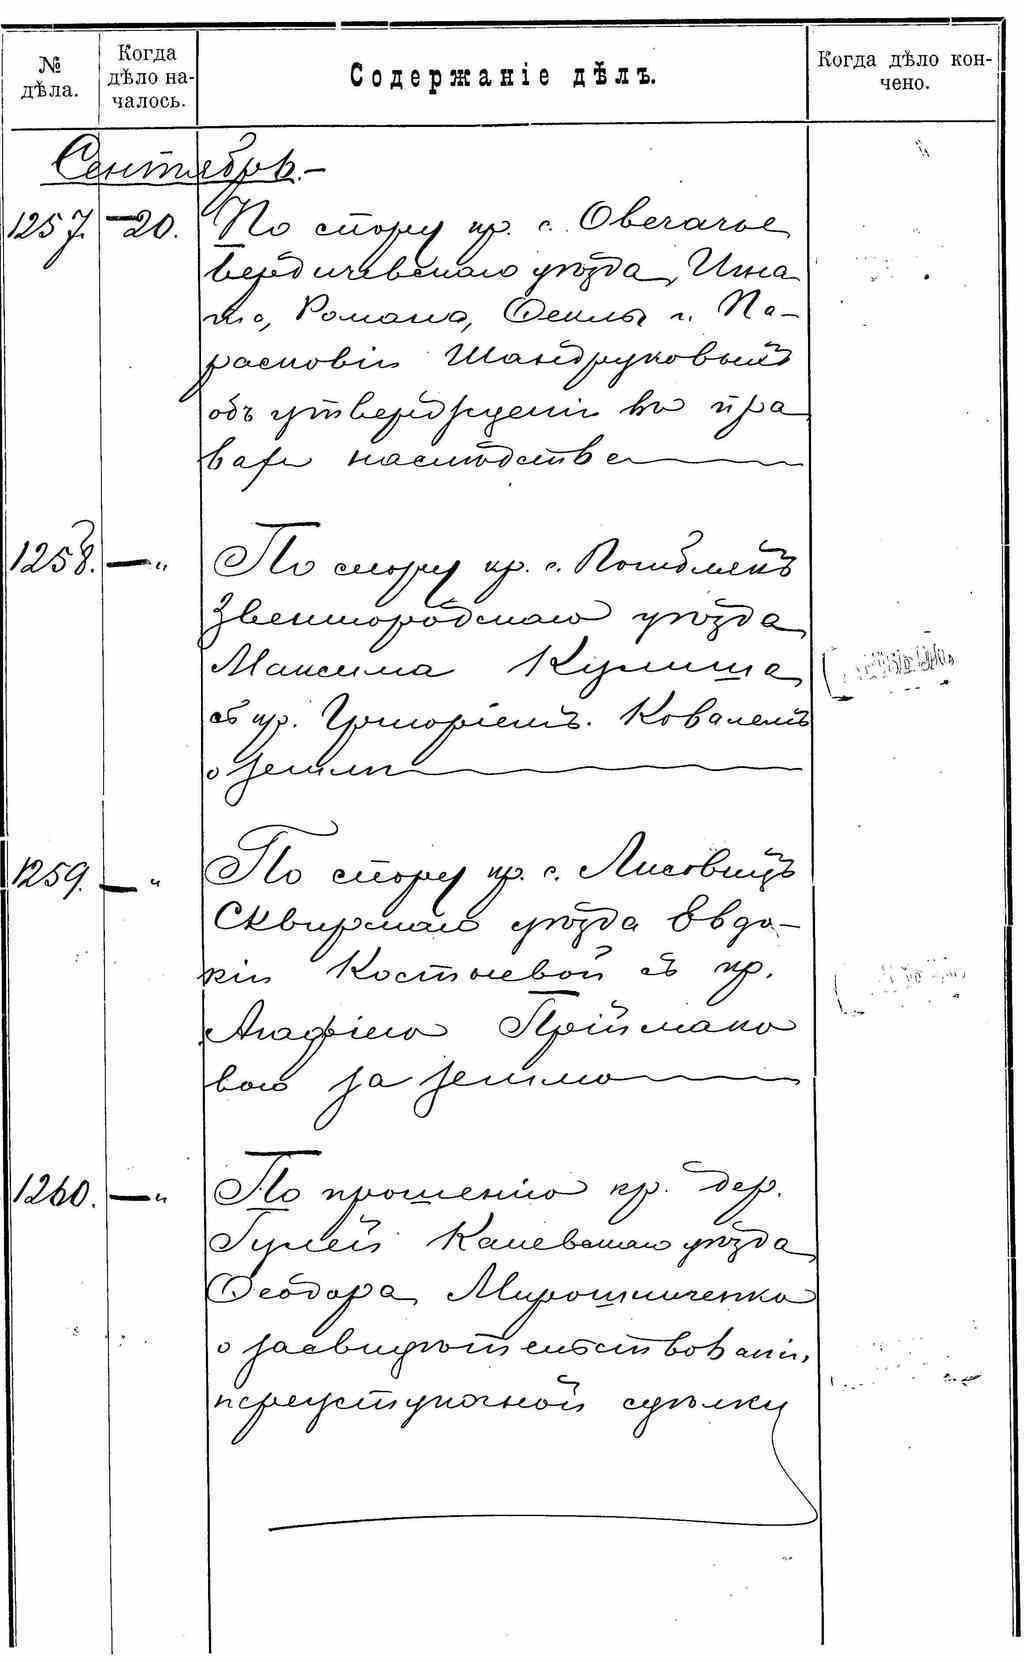 № дѣла.
Когда дѣло на-чалось.
Содержаніе дѣлъ.
Когда дѣло кон-чено.
Сентябрь.-
1257. —20. По спору кр. с. Овечачье
Бердичевскаго уѣзда, Игна
та, Романа, Феклы и Па-
расковіи Шандруковыхъ
объ утвержденіи въ пра
вахъ наслѣдства
1258. —„ По спору кр. с.
Звенигородскаго уѣзда
Максима Кулиша
съ кр. Григоріемъ. Ковалемъ
о землѣ
1259. —„ По спору кр. с. Лисовецъ
Сквирскаго уѣзда Евдо-
кіи Костюевой съ кр.
Агафіею Приймако
вою за землю
1260. —„ По прошенію кр. дер.
Гулей Каневскаго уѣзда
Феодора Мирошниченко
о засвидѣтельствованіи
переуступочной сдѣлки